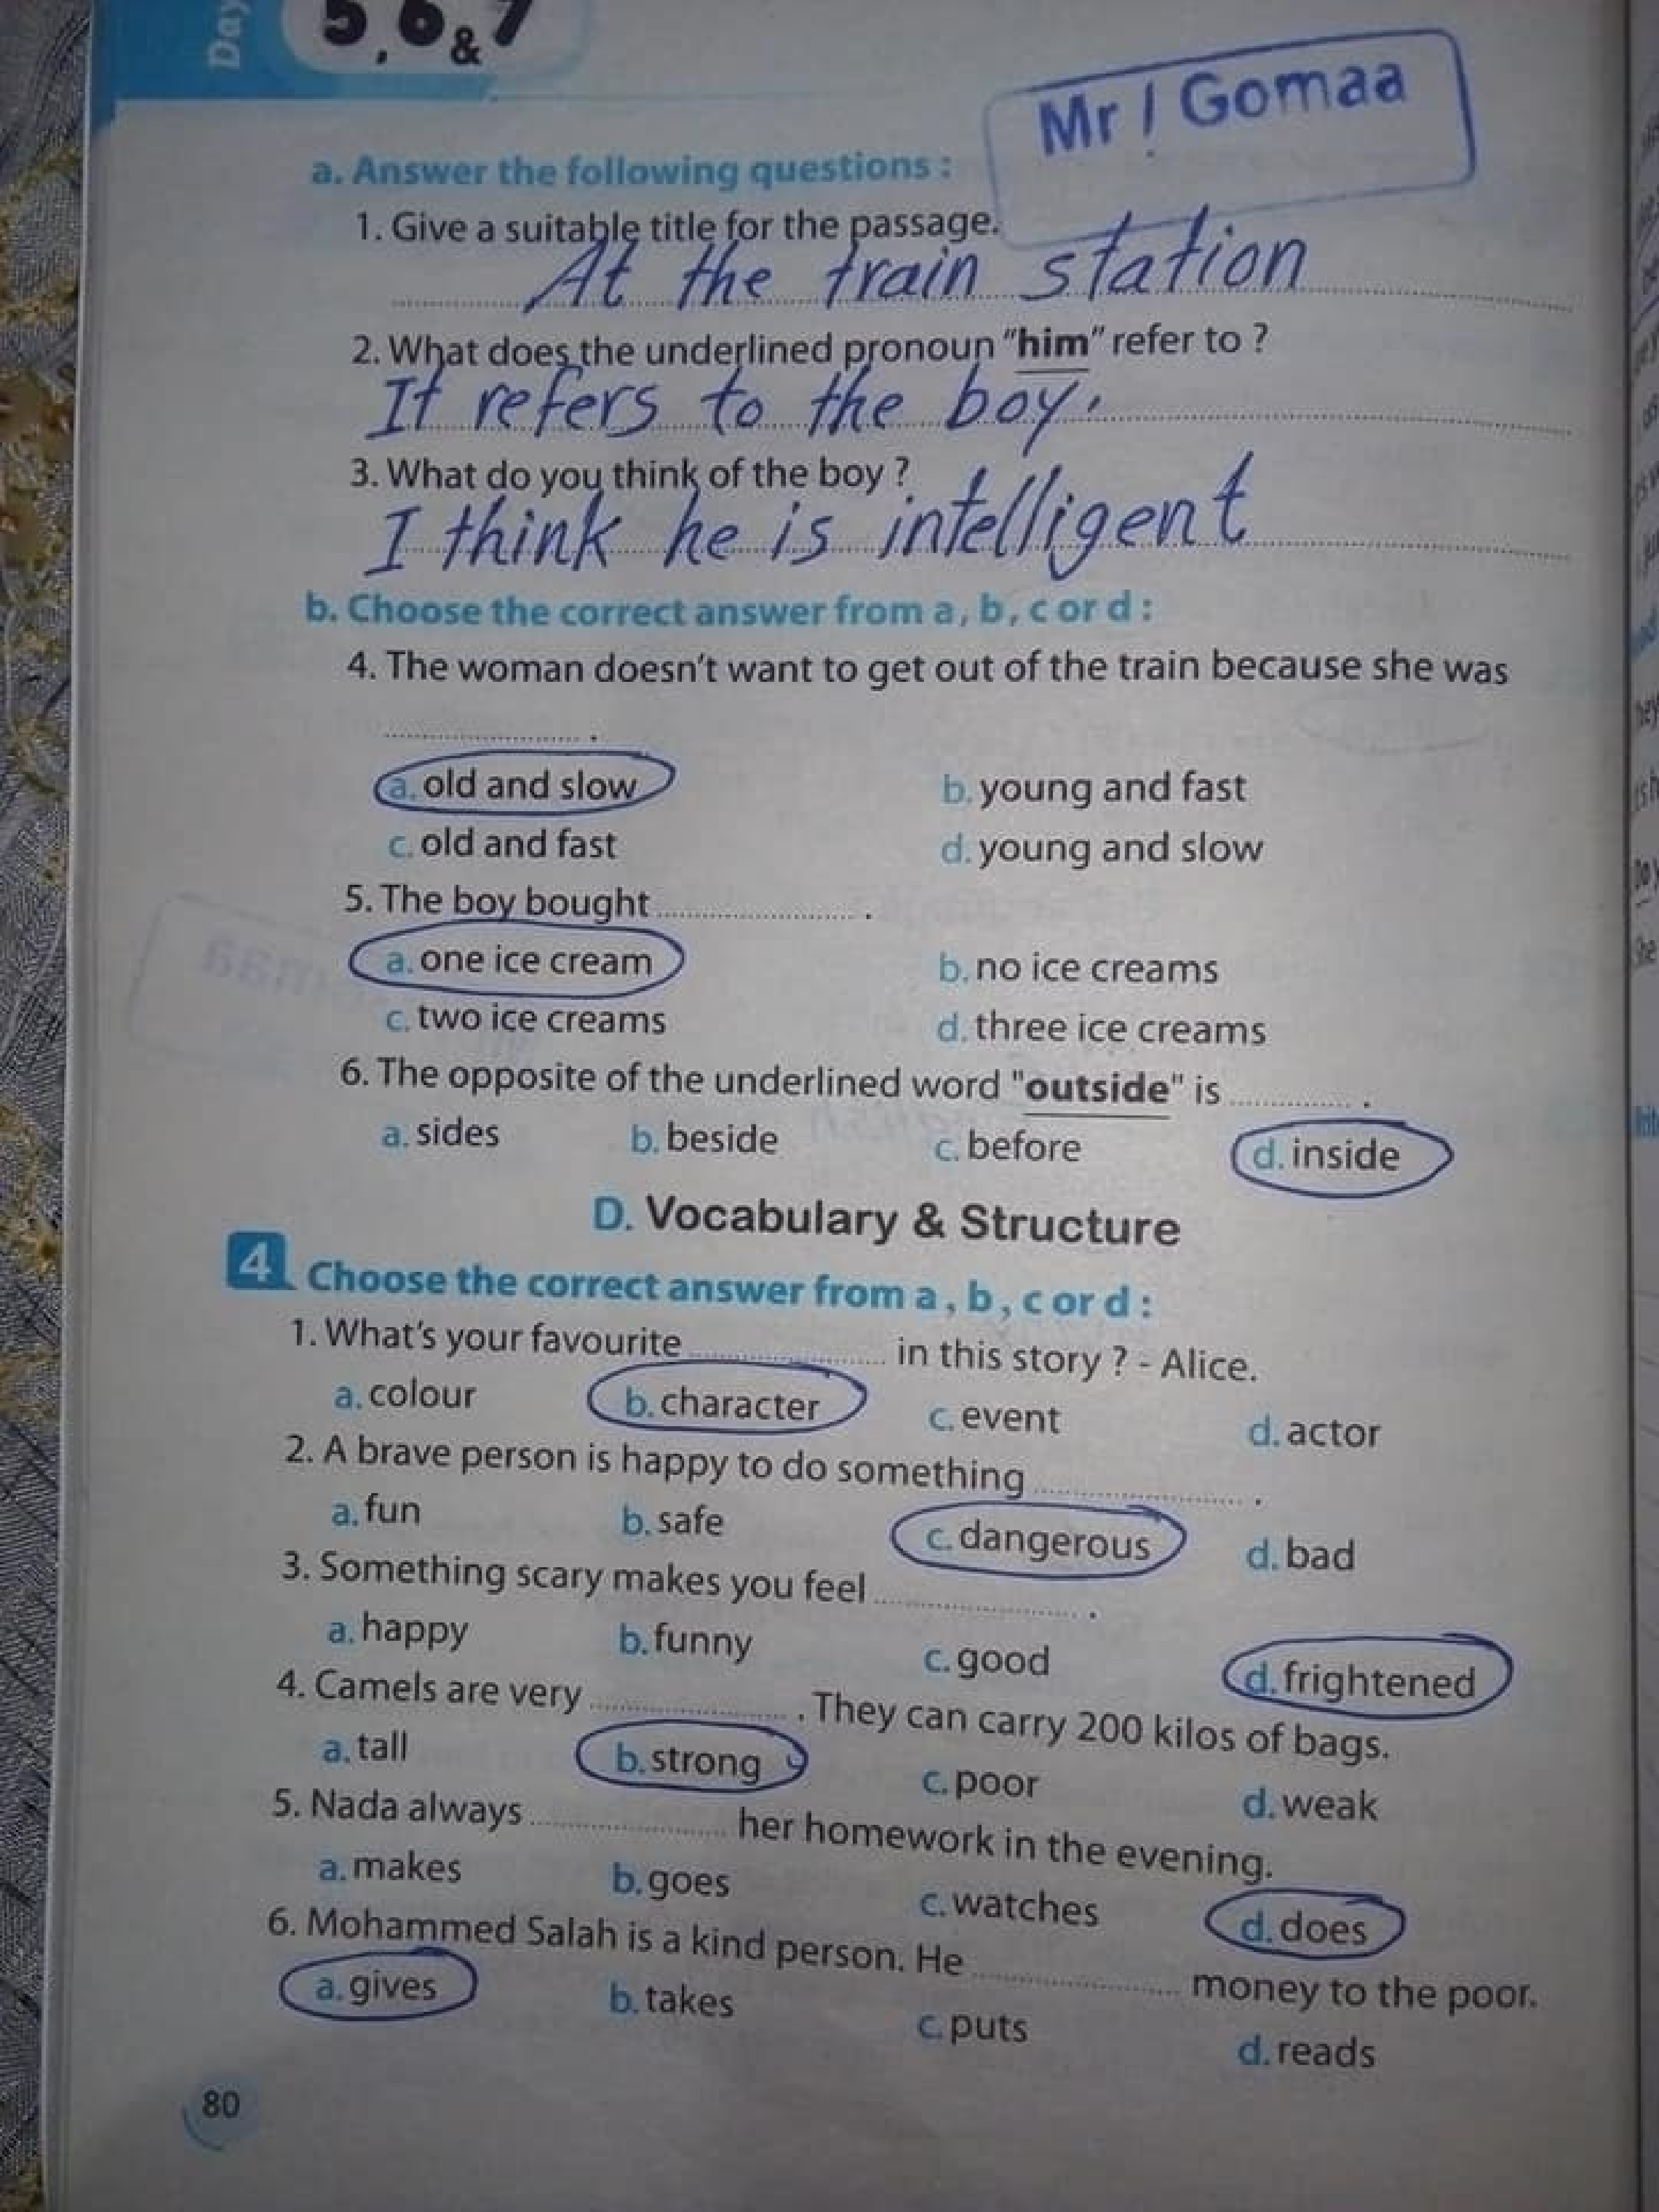 Day
5,6&7
Mr / Gomaa
a. Answer the following questions :
1. Give a suitable title for the passage.
At the train station
2. What does the underlined pronoun "him" refer to ?
It refers to the boy.
3. What do you think of the boy ?
I think he is intelligent
b. Choose the correct answer from a , b , c or d :
4. The woman doesn't want to get out of the train because she was
.................... .
a. old and slow b. young and fast
c. old and fast d. young and slow
5. The boy bought .................... .
a. one ice cream b. no ice creams
c. two ice creams d. three ice creams
6. The opposite of the underlined word "outside" is ............. .
a. sides b. beside c. before d. inside
D. Vocabulary & Structure
4 Choose the correct answer from a , b , c or d :
1. What's your favourite .................... in this story ? - Alice.
a. colour b. character c. event d. actor
2. A brave person is happy to do something .................... .
a. fun b. safe c. dangerous d. bad
3. Something scary makes you feel .................... .
a. happy b. funny c. good d. frightened
4. Camels are very .................... . They can carry 200 kilos of bags.
a. tall b. strong c. poor d. weak
5. Nada always .................... her homework in the evening.
a. makes b. goes c. watches d. does
6. Mohammed Salah is a kind person. He .................... money to the poor.
a. gives b. takes c. puts d. reads
80